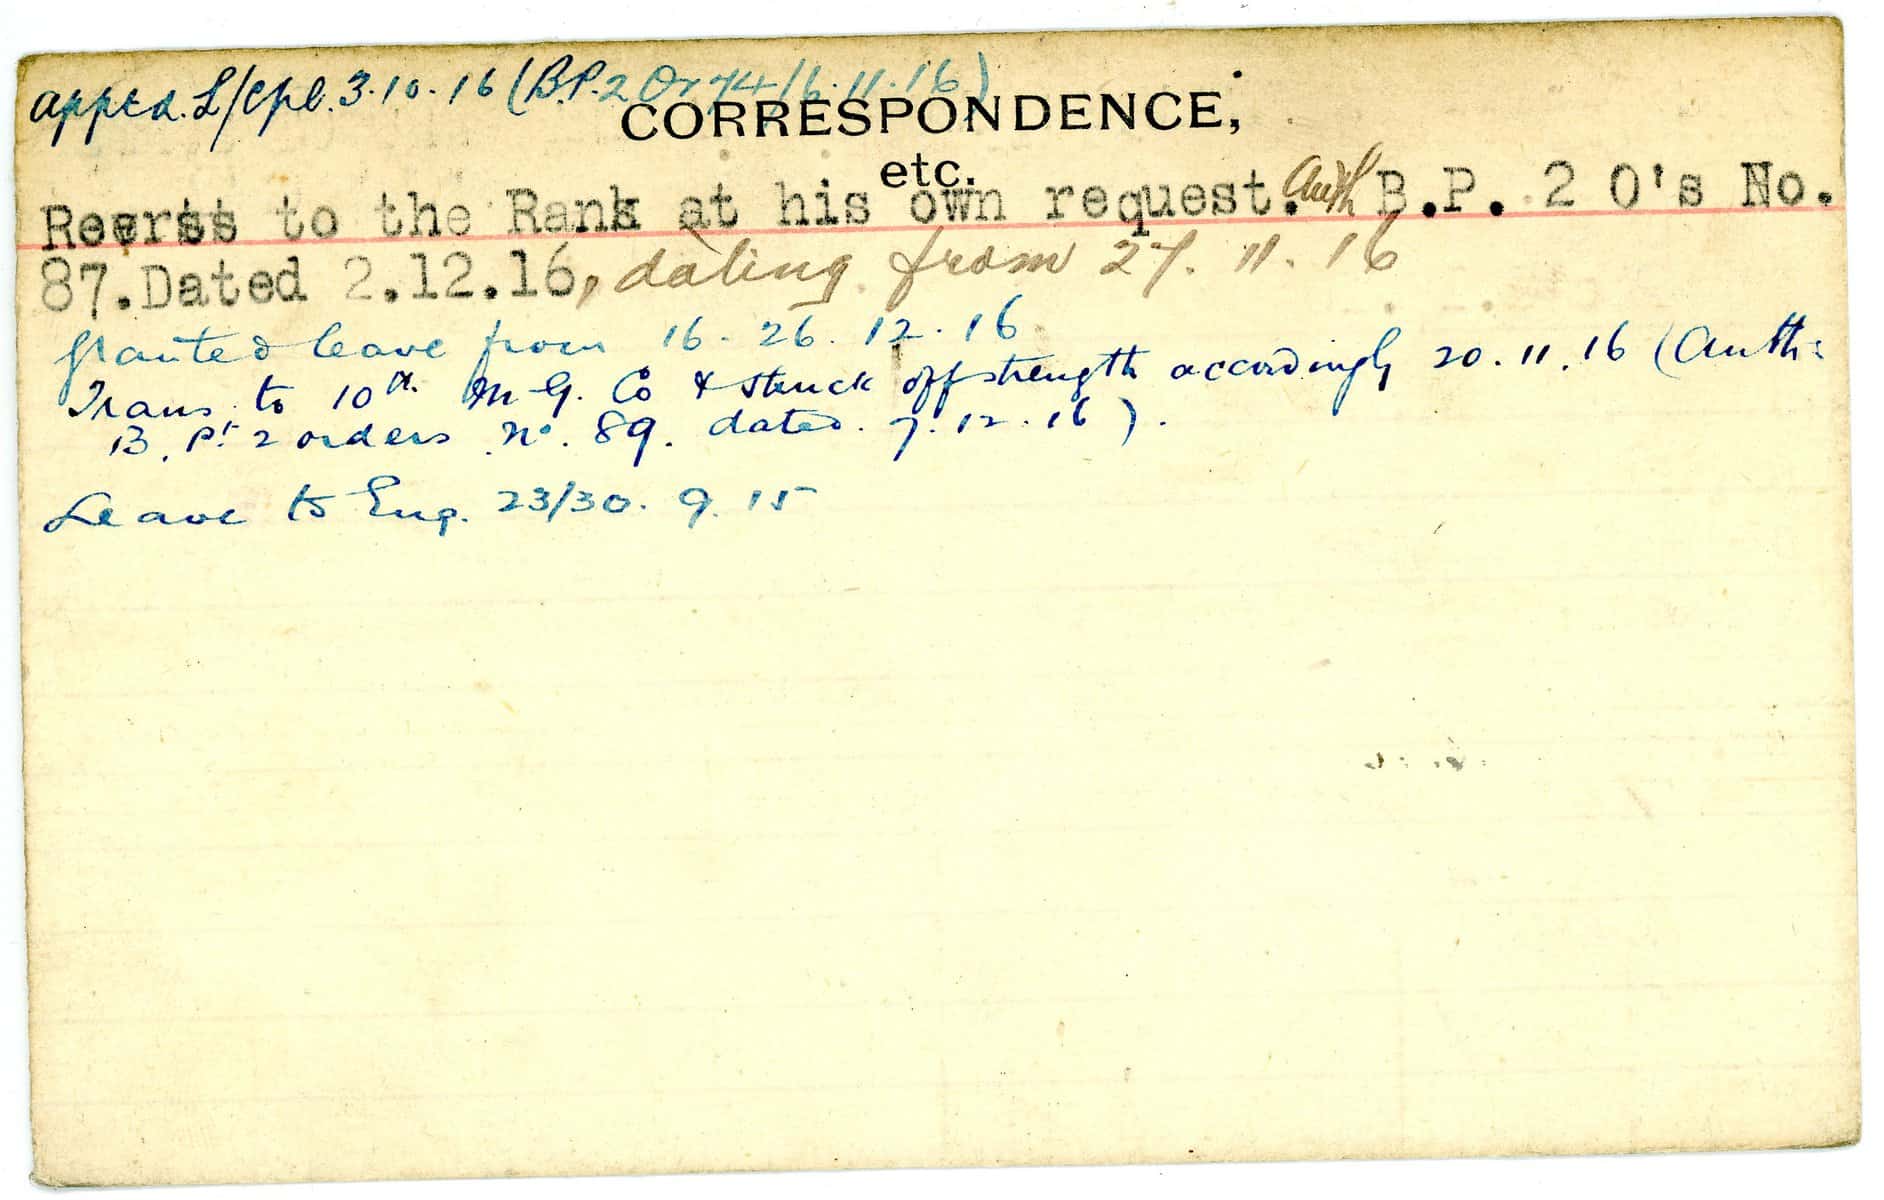 apptd. L/Cpl. 3.10.16 (B.P.2 Or 74/16.11.16)
CORRESPONDENCE,
etc.
Reverts to the Rank at his own request. Auth B.P. 2 O's No.
87. Dated 2.12.16, dating from 27.11.16
Granted leave from 16-26.12.16
Trans. to 10th M.G. Co & struck off strength accordingly 20.11.16 (Auth:
B. Pt 2 orders No. 89. dated 7.12.16).
Leave to Eng. 23/30.9.15